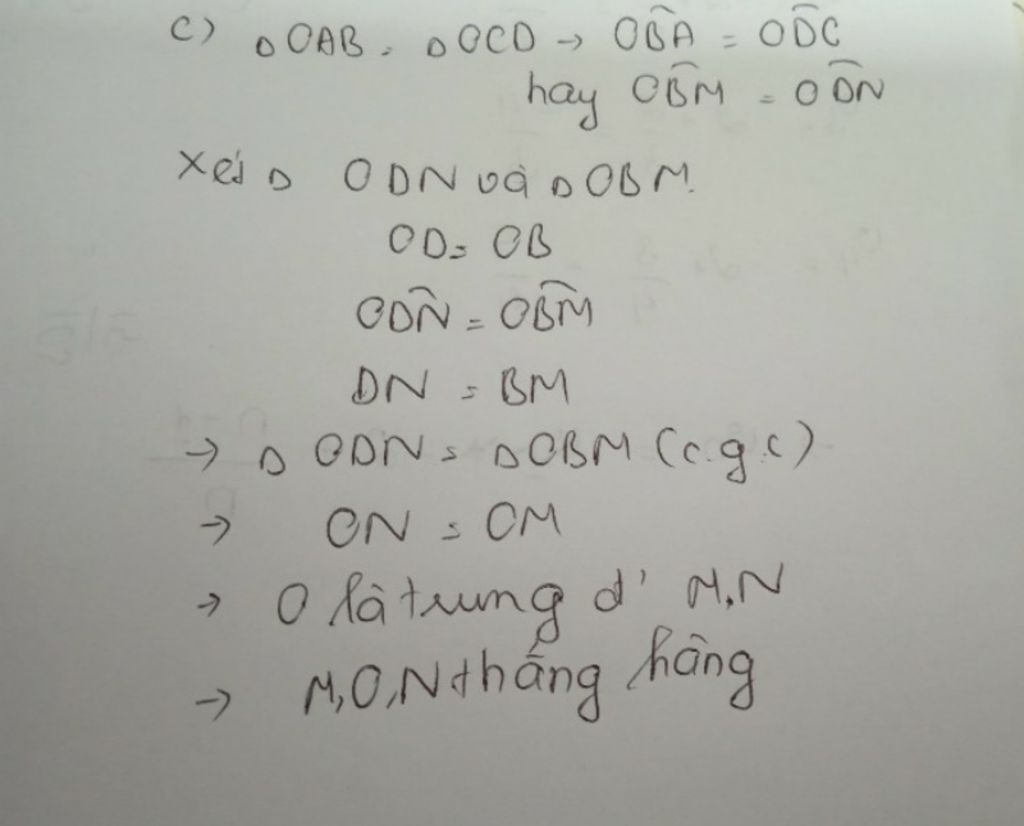 c) △OAB = △OCD → OB̂A = OD̂C
hay OB̂M = OD̂N
Xét △ ODN và △OBM.
OD = OB
OD̂N = OB̂M
DN = BM
→ △ ODN = △OBM (c.g.c)
→ ON = OM
→ O là trung đ' M,N
→ M,O,N thẳng hàng